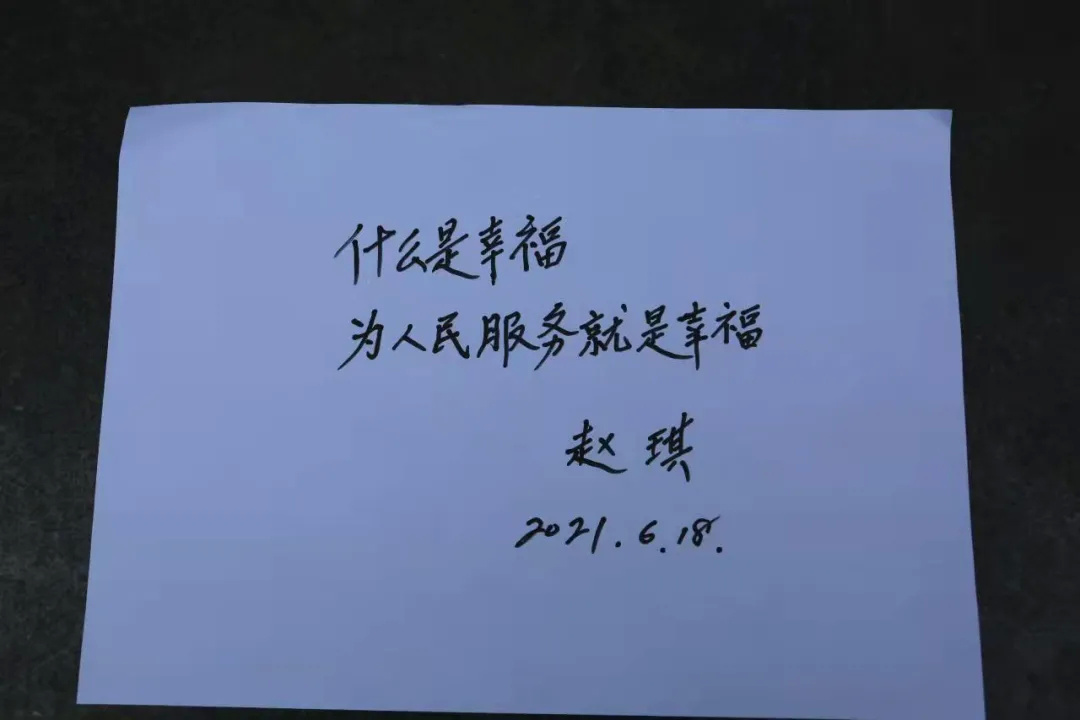 什么是幸福
为人民服务就是幸福
赵琪
2021.6.18.